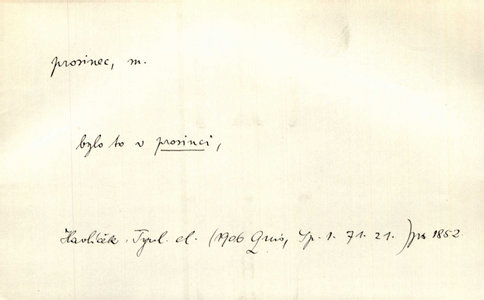 prosinec, m.
bylo to v prosinci,
Havlíček. Tyrol. el. (1906 Quis, Sp. 1. 71. 21.) po 1852